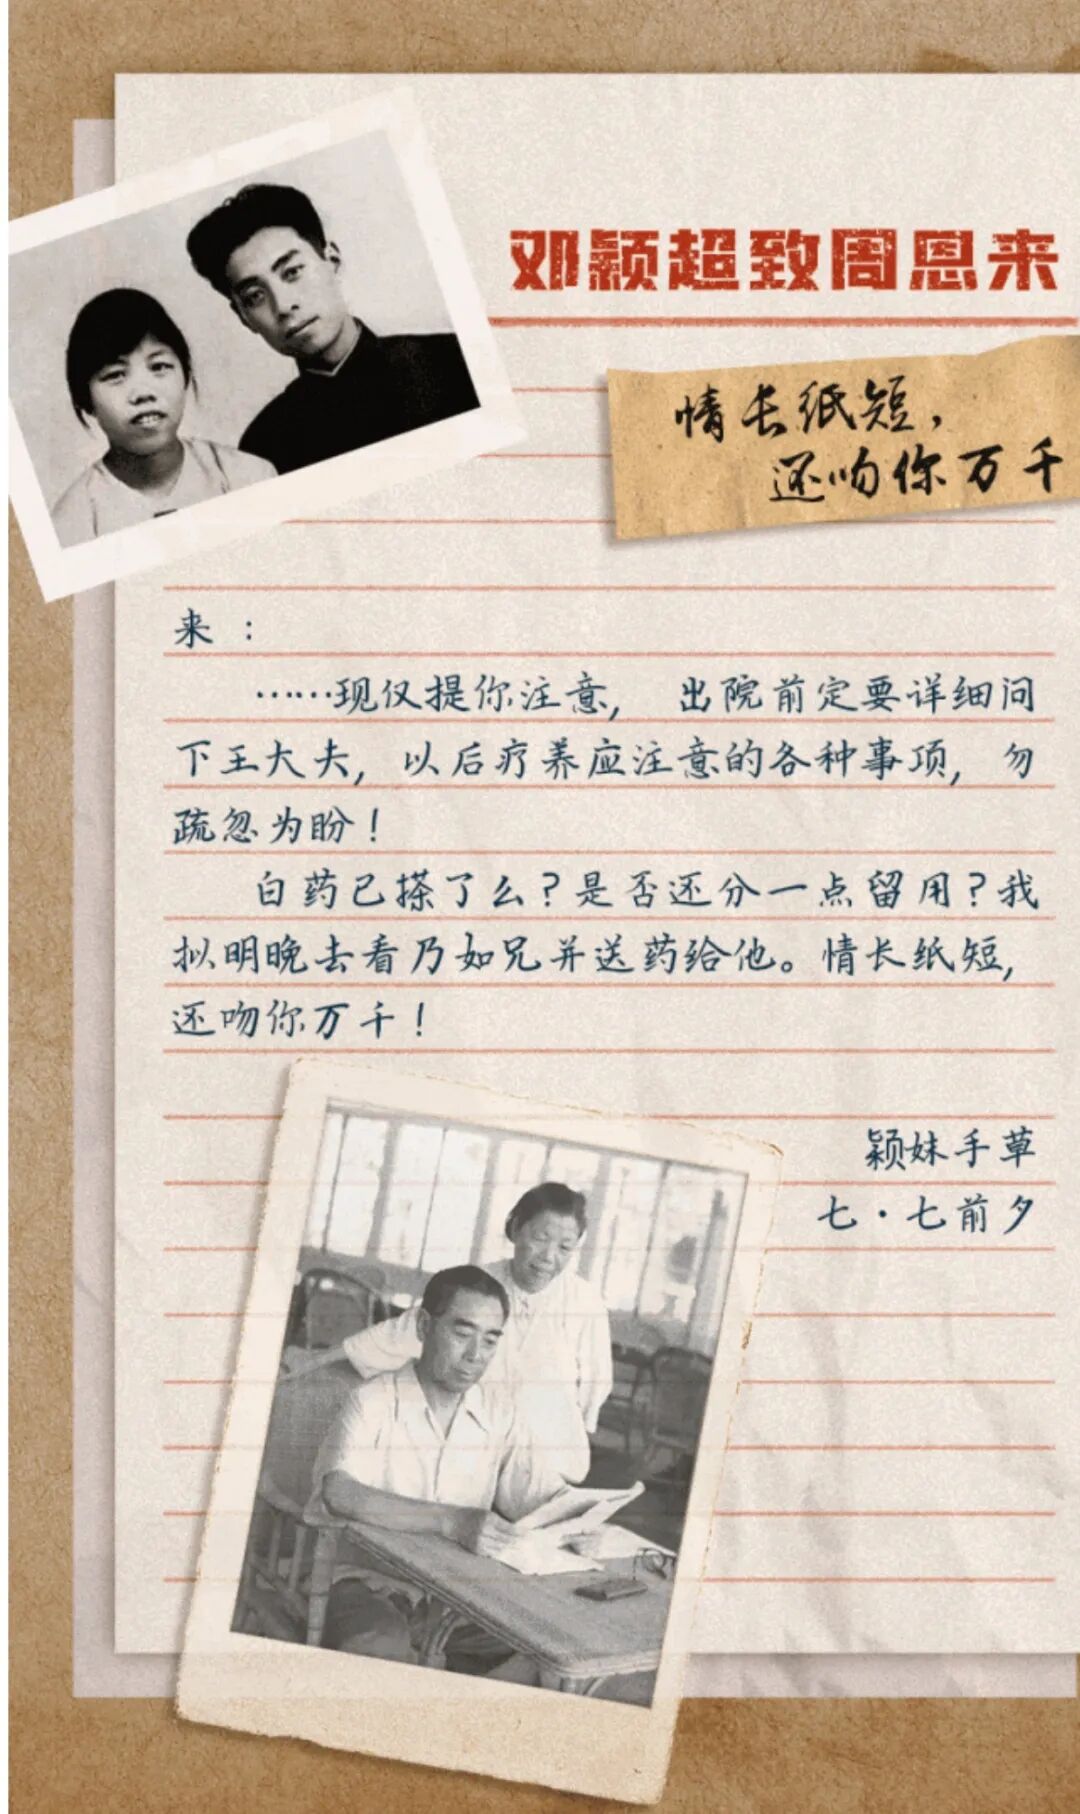 邓颖超致周恩来
情长纸短，
还吻你万千
来：
……现仅提你注意，出院前定要详细问
下王大夫，以后疗养应注意的各种事项，勿
疏忽为盼！
白药已搽了么？是否还分一点留用？我
拟明晚去看乃如兄并送药给他。情长纸短，
还吻你万千！
颖妹手草
七·七前夕